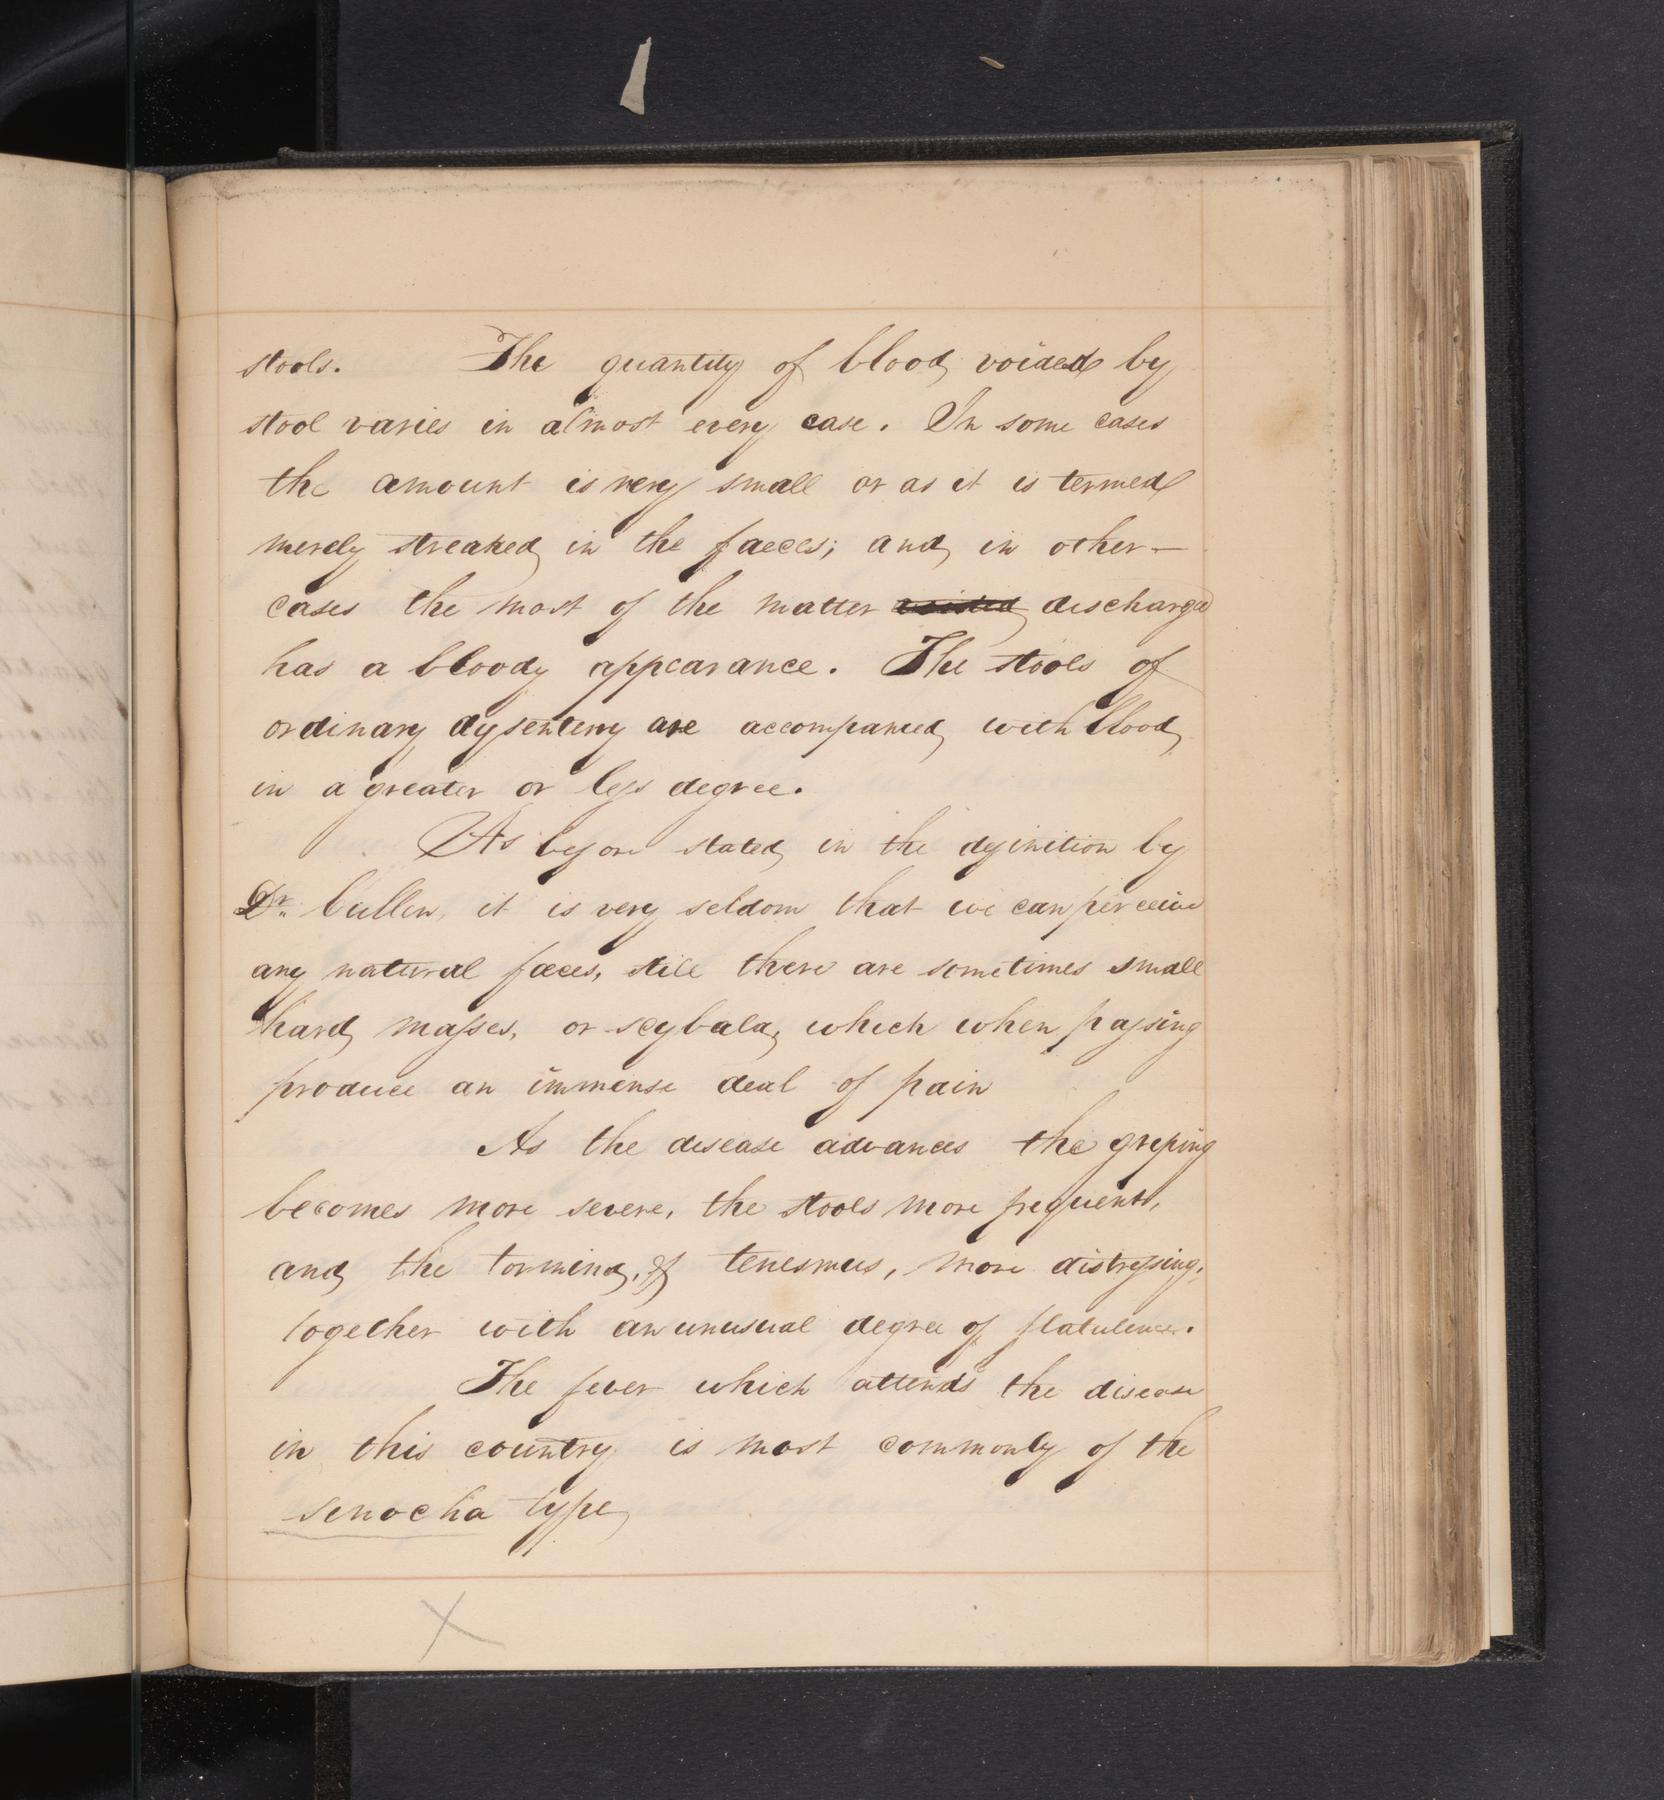 stools. The quantity of blood voided by
stool varies in almost every case. In some cases
the amount is very small or as it is termed
merely streaked in the faeces; and in other
cases the most of the matter voided discharged
has a bloody appearance. The stools of
ordinary dysentery are accompanied with blood
in a greater or less degree.
As before stated in the definition by
Dr. Cullen, it is very seldom that we can perceive
any natural faeces, still there are sometimes small
hard masses, or scybala, which when passing
produce an immense deal of pain
As the disease advances the griping
becomes more severe, the stools more frequent,
and the tormina, & tenesmus, more distressing,
together with an unusual degree of flatulence.
The fever which attends the disease
in this country is most commonly of the
senocha type